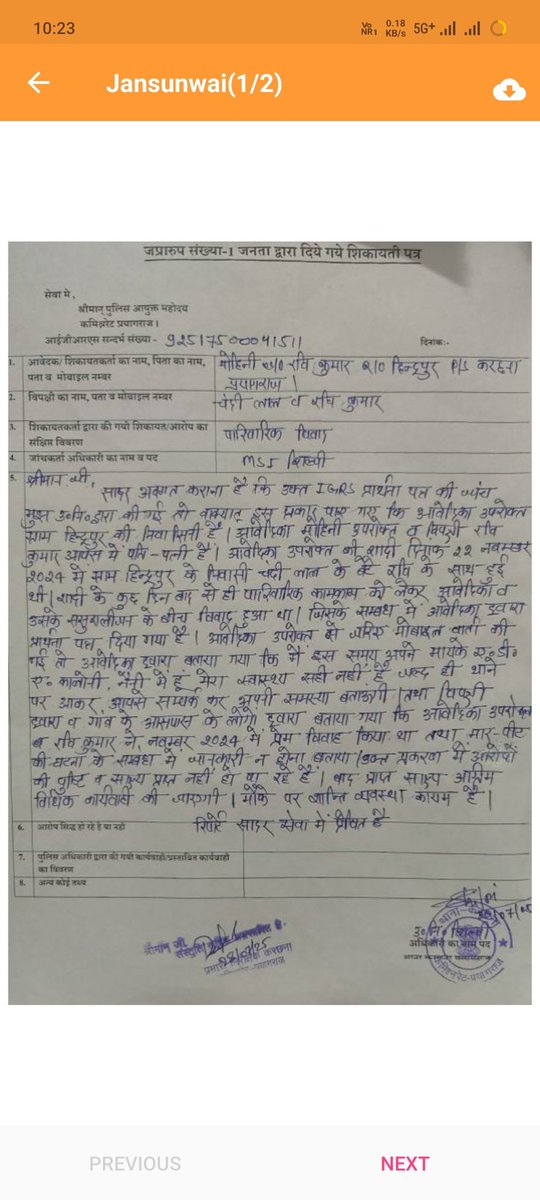 10:23
Vo NR1 0.18 KB/s 5G+
Jansunwai(1/2)
जप्रारुप संख्या-1 जनता द्वारा दिये गये शिकायती पत्र
सेवा मे,
श्रीमान् पुलिस आयुक्त महोदय
कमिश्नरेट प्रयागराज।
आईजीआरएस सन्दर्भ संख्या- 92517500041511 दिनांक:-
1. आवेदक/ शिकायतकर्ता का नाम, पिता का नाम, पता व मोबाइल नम्बर
मोहिनी w/o रवि कुमार R/O हिन्दूपुर P/S करछना
प्रयागराज।
2. विपक्षी का नाम, पता व मोबाइल नम्बर
चंदी लाल व रवि कुमार
3. शिकायतकर्ता द्वारा की गयी शिकायत/आरोप का संक्षिप्त विवरण
पारिवारिक विवाद
4. जांचकर्ता अधिकारी का नाम व पद
शिल्पी
5. श्रीमान जी,
सादर अवगत कराना है कि उक्त IGRS प्रार्थना पत्र की जांच
मुझ उ०नि० द्वारा की गई तो वाक्यात इस प्रकार पाए गए कि आवेदिका उपरोक्त
ग्राम हिन्दूपुर की निवासिनी है। आवेदिका मोहिनी उपरोक्त व विपक्षी रवि
कुमार आपस में पति-पत्नी है। आवेदिका उपरोक्त की शादी दिनांक 22 नवम्बर
2024 में ग्राम हिन्दूपुर के निवासी चंदी लाल के बेटे रवि के साथ हुई
थी। शादी के कुछ दिन बाद से ही पारिवारिक कामकाज को लेकर आवेदिका व
उसके ससुरालीजन के बीच विवाद हुआ था। जिसके सम्बध में आवेदिका द्वारा
प्रार्थना पत्र दिया गया है। आवेदिका उपरोक्त से जरिए मोबाइल वार्ता की
गई तो आवेदिका द्वारा बताया गया कि मैं इस समय अपने मायके ए०डी०
ए० कालोनी, नैनी में हूं मेरा स्वास्थ्य सही नहीं है जल्द ही थाने
पर आकर आपसे सम्पर्क कर अपनी समस्या बताऊगी। तथा विपक्षी
द्वारा व गांव के आसपास के लोगो द्वारा बताया गया कि आवेदिका उपरोक्त
व रवि कुमार ने नवम्बर 2024 में प्रेम विवाह किया था तथा मार-पीट
की घटना के सम्बध में जानकारी न होना बताया। उक्त प्रकरण में आरोपों
की पुष्टि व साक्ष्य प्राप्त नहीं हो पा रहे हैं। बाद प्राप्त साक्ष्य अग्रिम
विधिक कार्यवाही की जाएगी। मौके पर शान्ति व्यवस्था कायम है।
रिपोर्ट सादर सेवा में प्रेषित है
6. आरोप सिद्ध हो रहे है या नही
7. पुलिस अधिकारी द्वारा की गयी कार्यवाही/प्रस्तावित कार्यवाही का विवरण
8. अन्य कोई तथ्य
उ०नि० शिल्पी
अधिकारी का नाम पद
श्रीमान जी,
करछना
कमिश्नरेट-प्रयागराज
PREVIOUS
NEXT